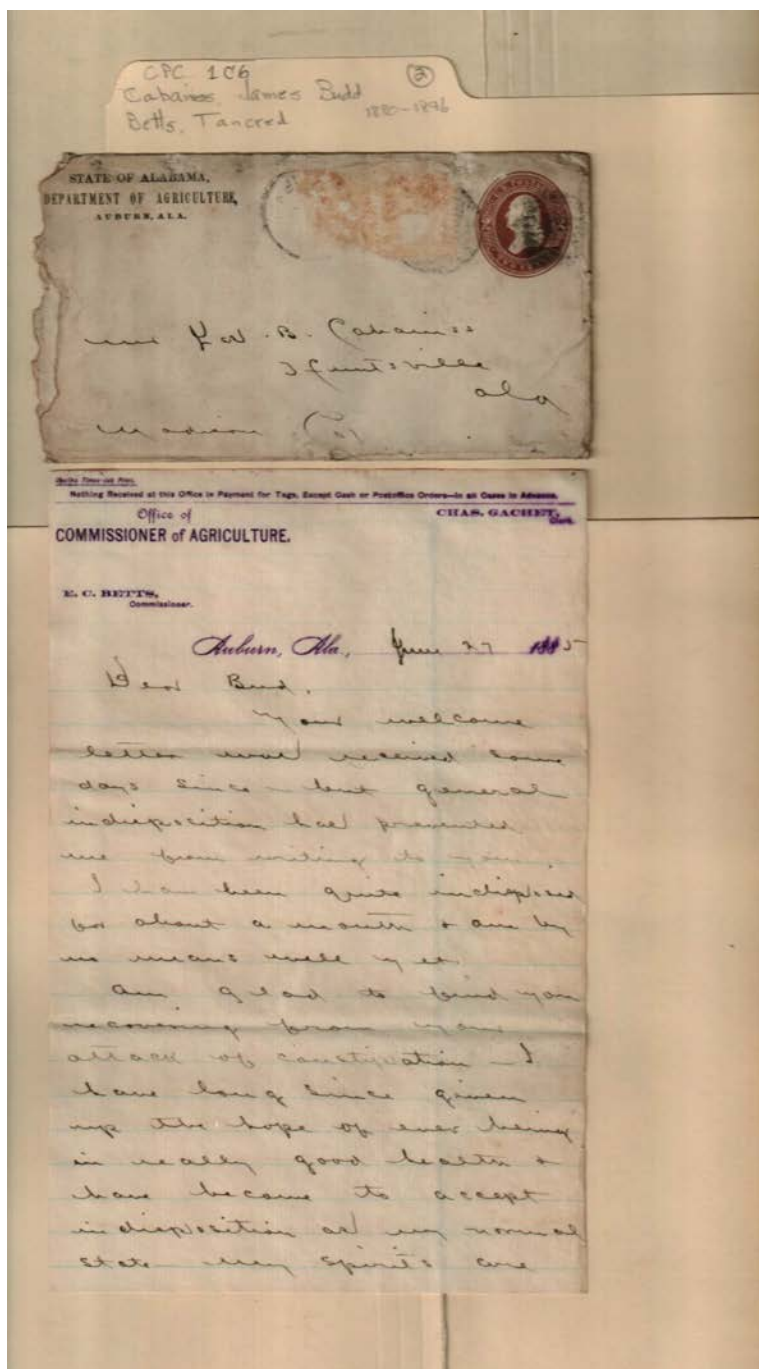 CPC 106
②
Cabaniss, James Budd
1880-1896
Betts, Tancred
STATE OF ALABAMA,
DEPARTMENT OF AGRICULTURE,
AUBURN, ALA.
B. Cabaniss
Huntsville
Ala
Madison Co
Nothing Received at this Office in Payment for Tags, Except Cash or Postoffice Orders—in all Cases in Advance.
Office of
CHAS. GACHET,
Clerk.
COMMISSIONER of AGRICULTURE.
E. C. BETTS,
Commissioner.
Auburn, Ala., June 27 1885
Dear Bud,
Your welcome
letter was received some
days since - but general
indisposition has prevented
me from writing to you.
I have been quite indisposed
for about a month & am by
no means well yet.
Am glad to find you
recovering from your
attack of constipation - I
have long since given
up the hope of ever being
in really good health &
have become to accept
indisposition as my normal
state my spirits are